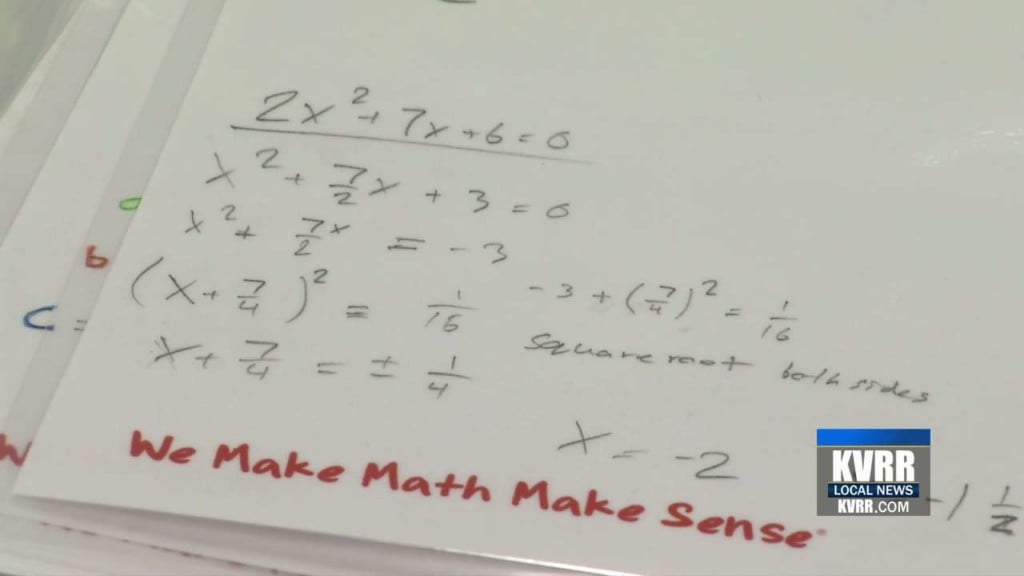 2x² + 7x + 6 = 0
x² + 7/2 x + 3 = 0
x² + 7/2 x = -3
(x + 7/4)² = 1/16
-3 + (7/4)² = 1/16
x + 7/4 = ± 1/4
square root both sides
x = -2
-1 1/2
b
C =
We Make Math Make Sense
KVRR
LOCAL NEWS
KVRR.COM